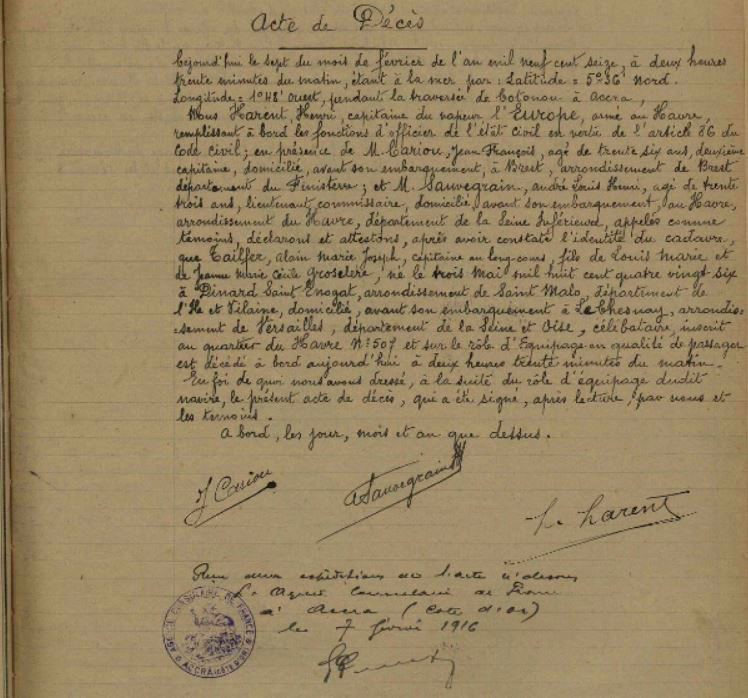 Acte de Décès
Cejourd'hui le sept du mois de février de l'an mil neuf cent seize, à deux heures
trente minutes du matin, étant à la mer par : Latitude = 5°36' Nord.
Longitude = 1°48' Ouest, pendant la traversée de Cotonou à Accra,
Nous Harent, Henri, capitaine du vapeur l'Europe, armé au Havre,
remplissant à bord les fonctions d'officier de l'état civil en vertu de l'article 86 du
Code Civil ; en présence de M. Cariou, Jean François, agé de trente six ans, deuxième
capitaine, domicilié, avant son embarquement, à Brest, arrondissement de Brest
département du Finistère ; et M. Sauvegrain, andré Louis Henri, agé de trente
trois ans, lieutenant commissaire, domicilié, avant son embarquement, au Havre,
arrondissement du Havre, département de la Seine Inférieure, appelés comme
témoins, déclarons et attestons, après avoir constaté l'identité du cadavre,
que Tailfer, alain Marie Joseph, capitaine au long-cours, fils de Louis Marie et
de Jeanne Marie Cécile Groseterc, né le trois Mai mil huit cent quatre vingt six
à Dinard Saint Enogat, arrondissement de Saint Malo, département de
l'Ile et Vilaine, domicilié, avant son embarquement à Le Chesnay, arrondis=
=sement de Versailles, département de la Seine et Oise, célibataire, inscrit
au quartier du Havre N°507 et sur le rôle d'Equipage en qualité de passager
est décédé à bord aujourd'hui à deux heures trente minutes du matin.
En foi de quoi nous avons dressé, à la suite du rôle d'équipage dudit
navire, le présent acte de décès, qui a été signé, après lecture, par nous et
les temoins.
A bord, les jour, mois et an que dessus.
J Cariou
A Sauvegrain
H. Harent
deux expéditions de l'acte ci-dessus
L'Agent Consulaire de France
à Accra (Cote d'or)
le 7 février 1916
AGENCE CONSULAIRE DE FRANCE
D'ACCRA (CÔTE D'OR)